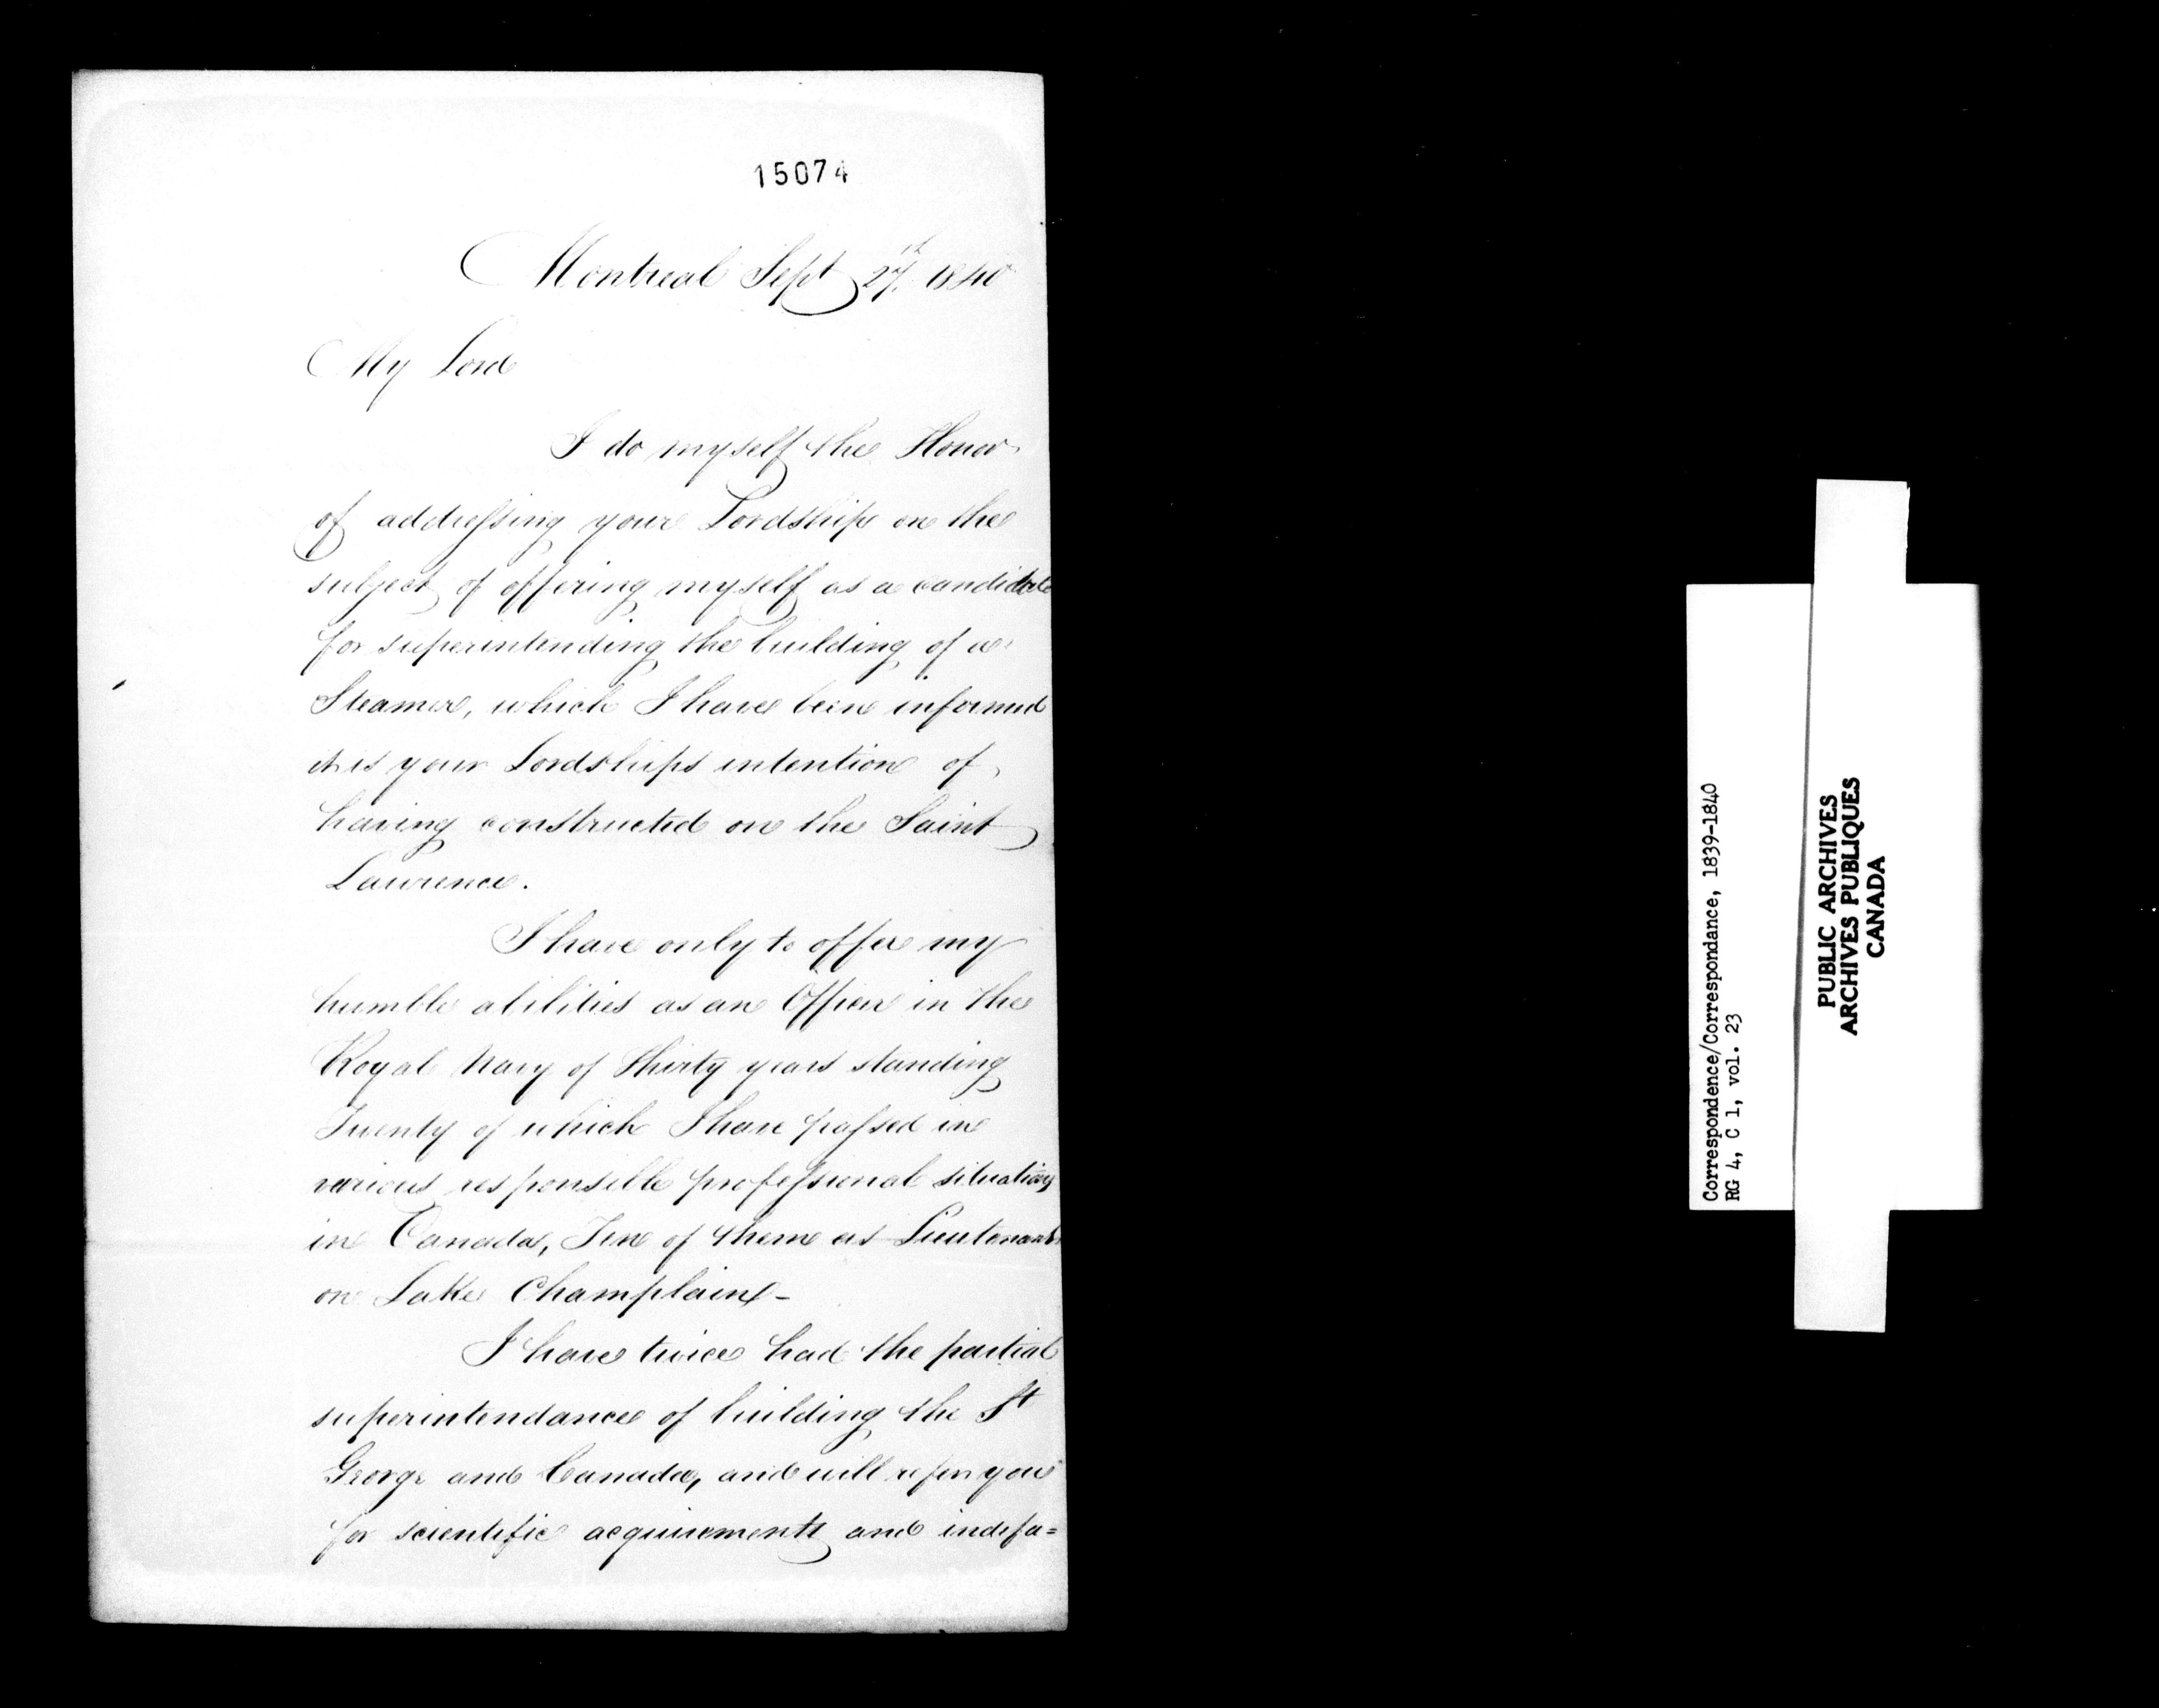 15074
Montreal Sept 27th. 1840
My Lord
I do myself the Honor
of addressing your Lordship on the
subject of offering myself as a candidate
for superintending the building of a
Steamer, which I have been informed
it is your Lordships intention of
having constructed on the Saint
Lawrence.
I have only to offer my
humble abilities as an Officer in the
Royal Navy of Thirty years standing
Twenty of which I have passed in
various responsible professional situations
in Canada, Ten of them as Lieutenant
on Lake Champlain -
I have twice had the partial
superintendance of building the St
George and Canada, and will refer you
for scientific acquirements and indefa=
Correspondence/Correspondance, 1839-1840
RG 4, C 1, vol. 23
PUBLIC ARCHIVES
ARCHIVES PUBLIQUES
CANADA